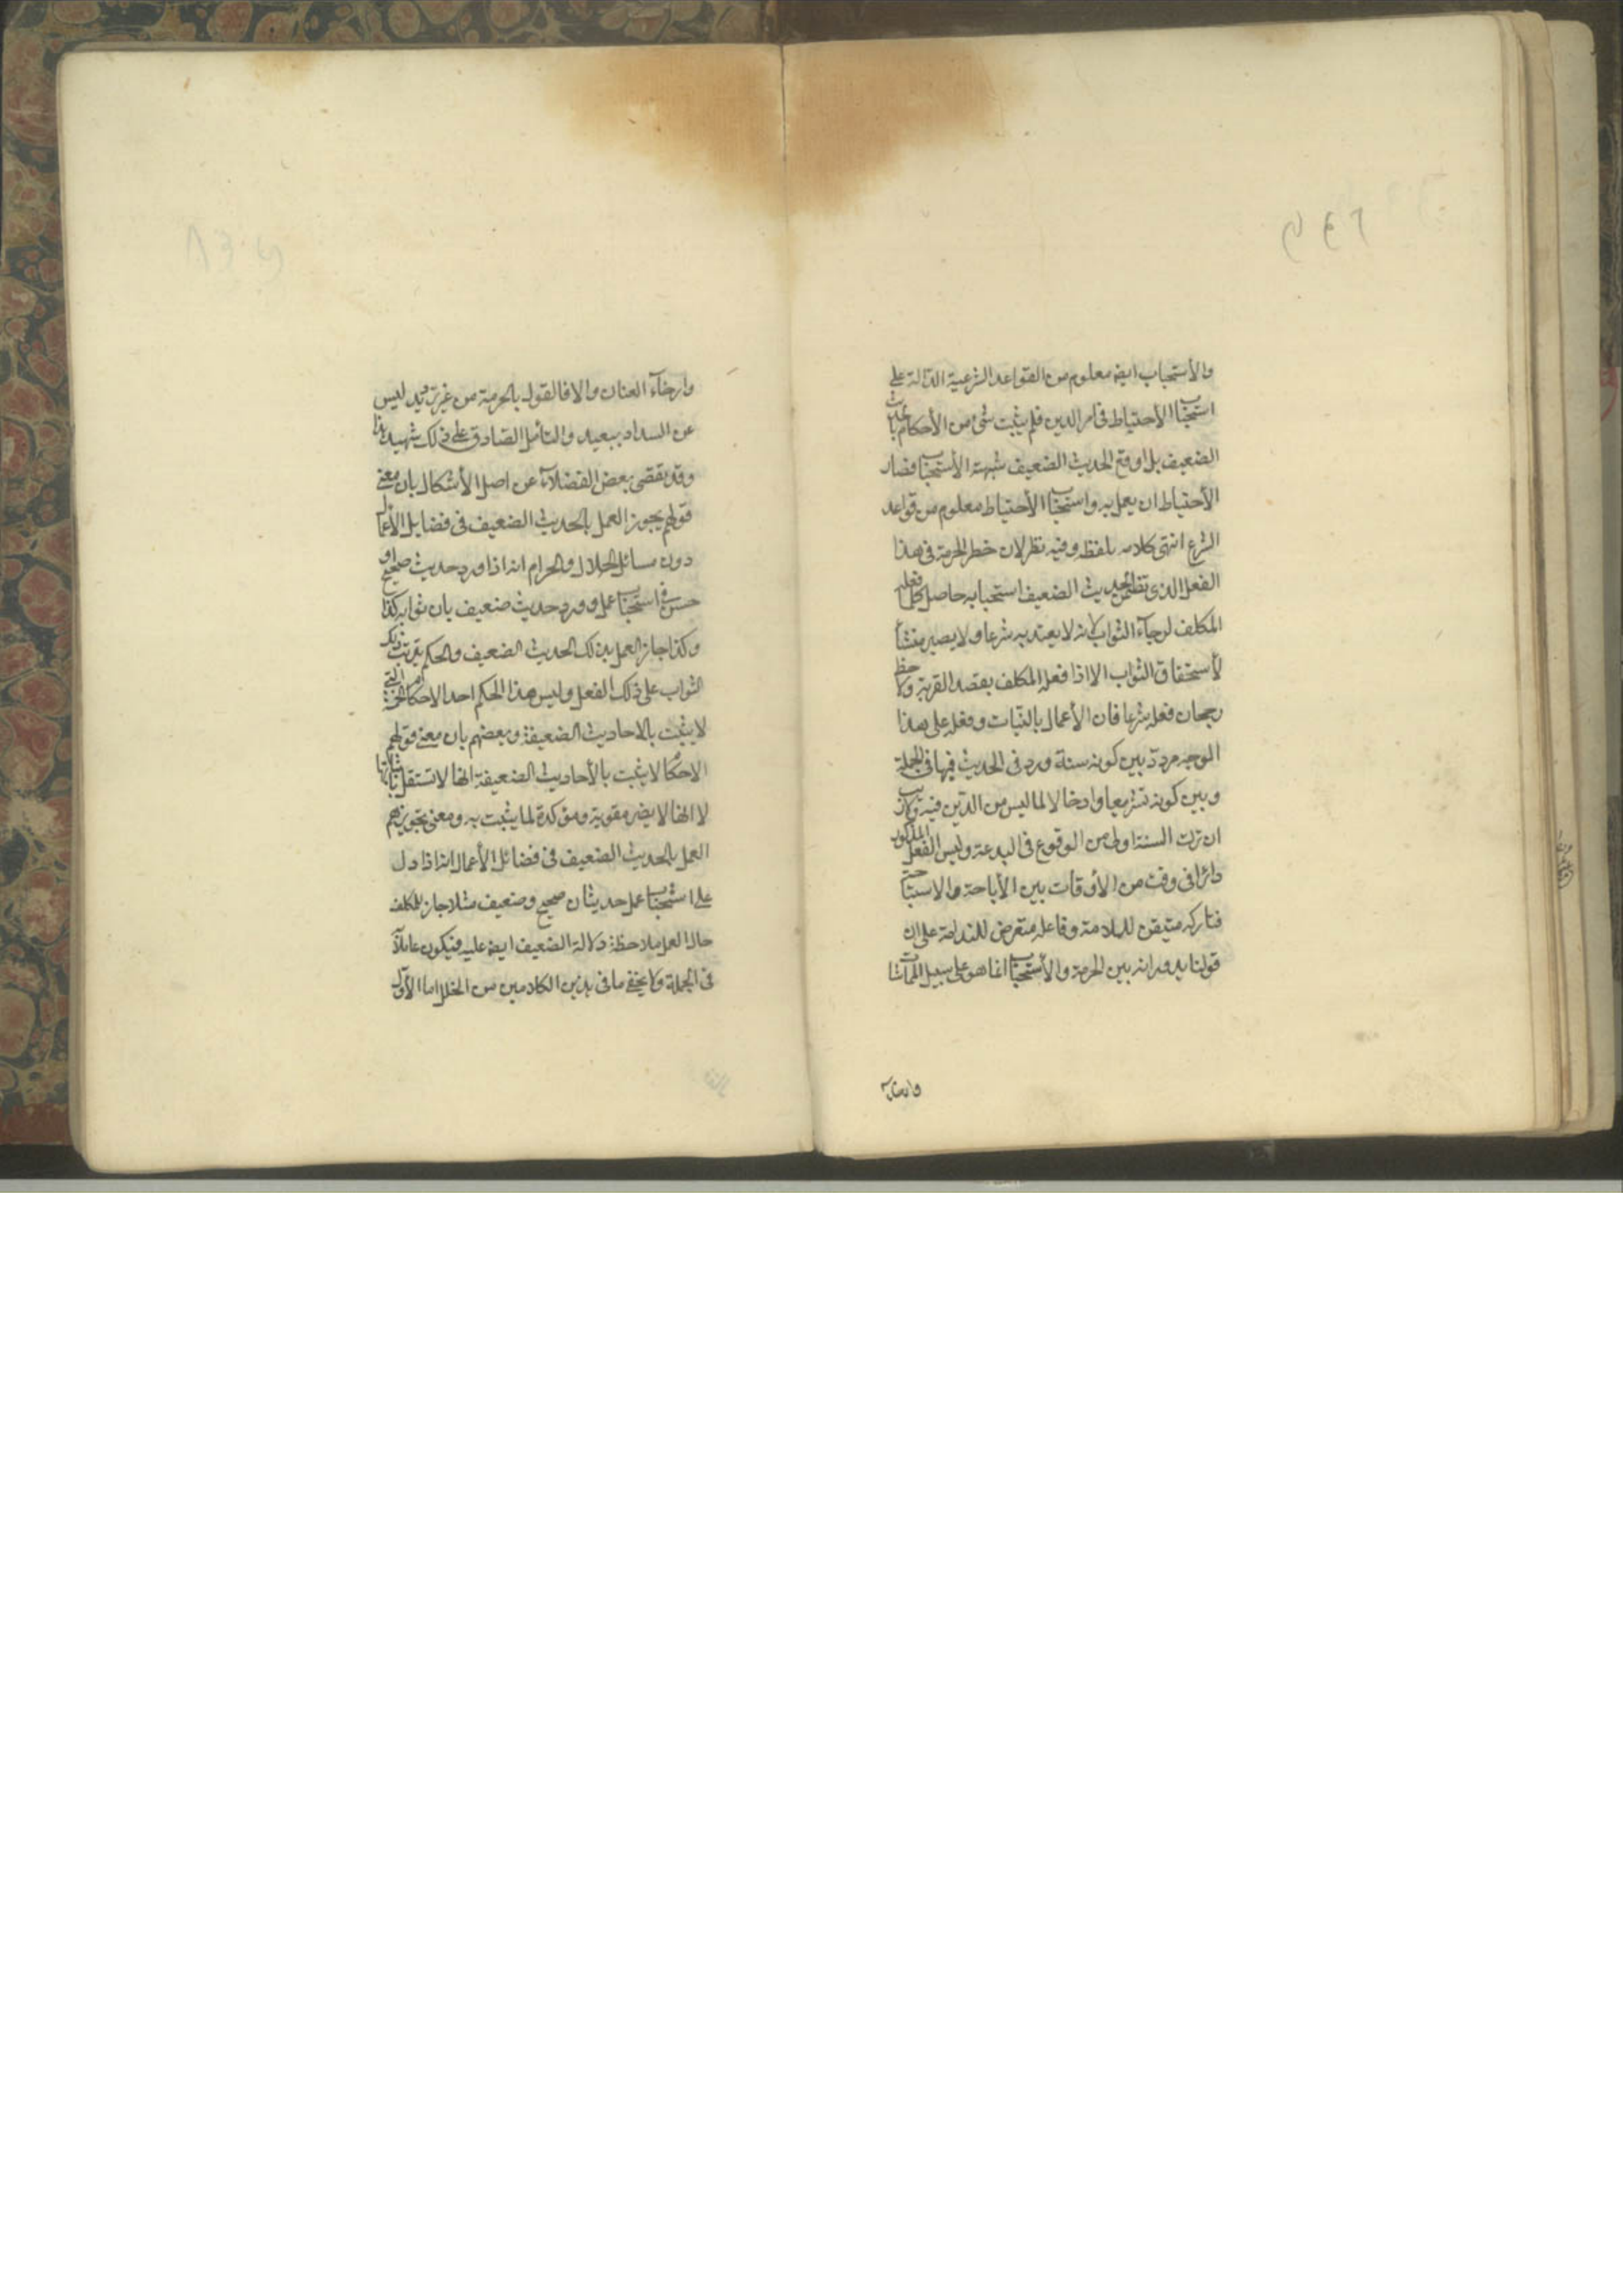 والأستحباب ايضه معلوم من القواعد الشرعية الدالة على
استحباب الأحتياط في امر الدين فلم يثبت شئ من الأحكام بالحديث
الضعيف بل اوقع الحديث الضعيف شبهة الأستحباب فصار
الأحتياط ان يعمل به واستحباب الأحتياط معلوم من قواعد
الشرع انتهى كلامه بلفظه وفيه نظر لان خطر الحرمة في هذا
الفعل الذي تضمن الحديث الضعيف استحبابه حاصل كلما فعله
المكلف لرجآء الثواب لانه لا يعتد به شرعا ولا يصير منشأ
لأستحقاق الثواب الا اذا فعله المكلف بقصد القربة ولاحظ
رجحان فعله شرعا فان الأعمال بالنيات وفعله على هذا
الوجه مردد بين كونه سنة ورد في الحديث فيها في الجملة
وبين كونه تشريعا وادخالا لما ليس من الدين فيه ولا ريب
ان ترك السنة اولى من الوقوع في البدعة وليس الفعل المذكور
دائرا في وقت من الأوقات بين الأباحة والاستحباب
فتاركه متيقن للسلامة وفاعله متعرض للندامة على ان
قولنا بدورانه بين الحرمة والأستحباب انما هو على سبيل المماشات
وارخاء
وارخآء العنان والا فالقول بالحرمة من غير ترديد ليس
عن السداد ببعيد والتأمل الصادق على ذلك شهيد هذا
وقد تفصى بعض الفضلآء عن اصل الأشكال بان معنى
قولهم يجوز العمل بالحديث الضعيف في فضايل الأعمال
دون مسائل الحلال والحرام انه اذا ورد حديث صحيح او
حسن في استحباب عمل وورد حديث ضعيف بان ثوابه كذا
وكذا جاز العمل بذلك الحديث الضعيف والحكم بترتب ذلك
الثواب على ذلك الفعل وليس هذا الحكم احد الاحكام الخمسة التي
لا يثبت بالاحاديث الضعيفة وبعضهم بان معنى قولهم
الاحكام لا يثبت بالأحاديث الضعيفة انها لا تستقل باثباتها
لا انها لا يصير مقوية ومؤكدة لما يثبت به ومعنى تجويزهم
العمل بالحديث الضعيف في فضائل الأعمال انه اذا دل
على استحباب عمل حديثان صحيح وضعيف مثلا جاز للمكلف
حال العمل ملاحظة دلالة الضعيف ايضه عليه فيكون عاملا به
في الجملة ولا يخفى ما في هذين الكلامين من الخلل اما الأول